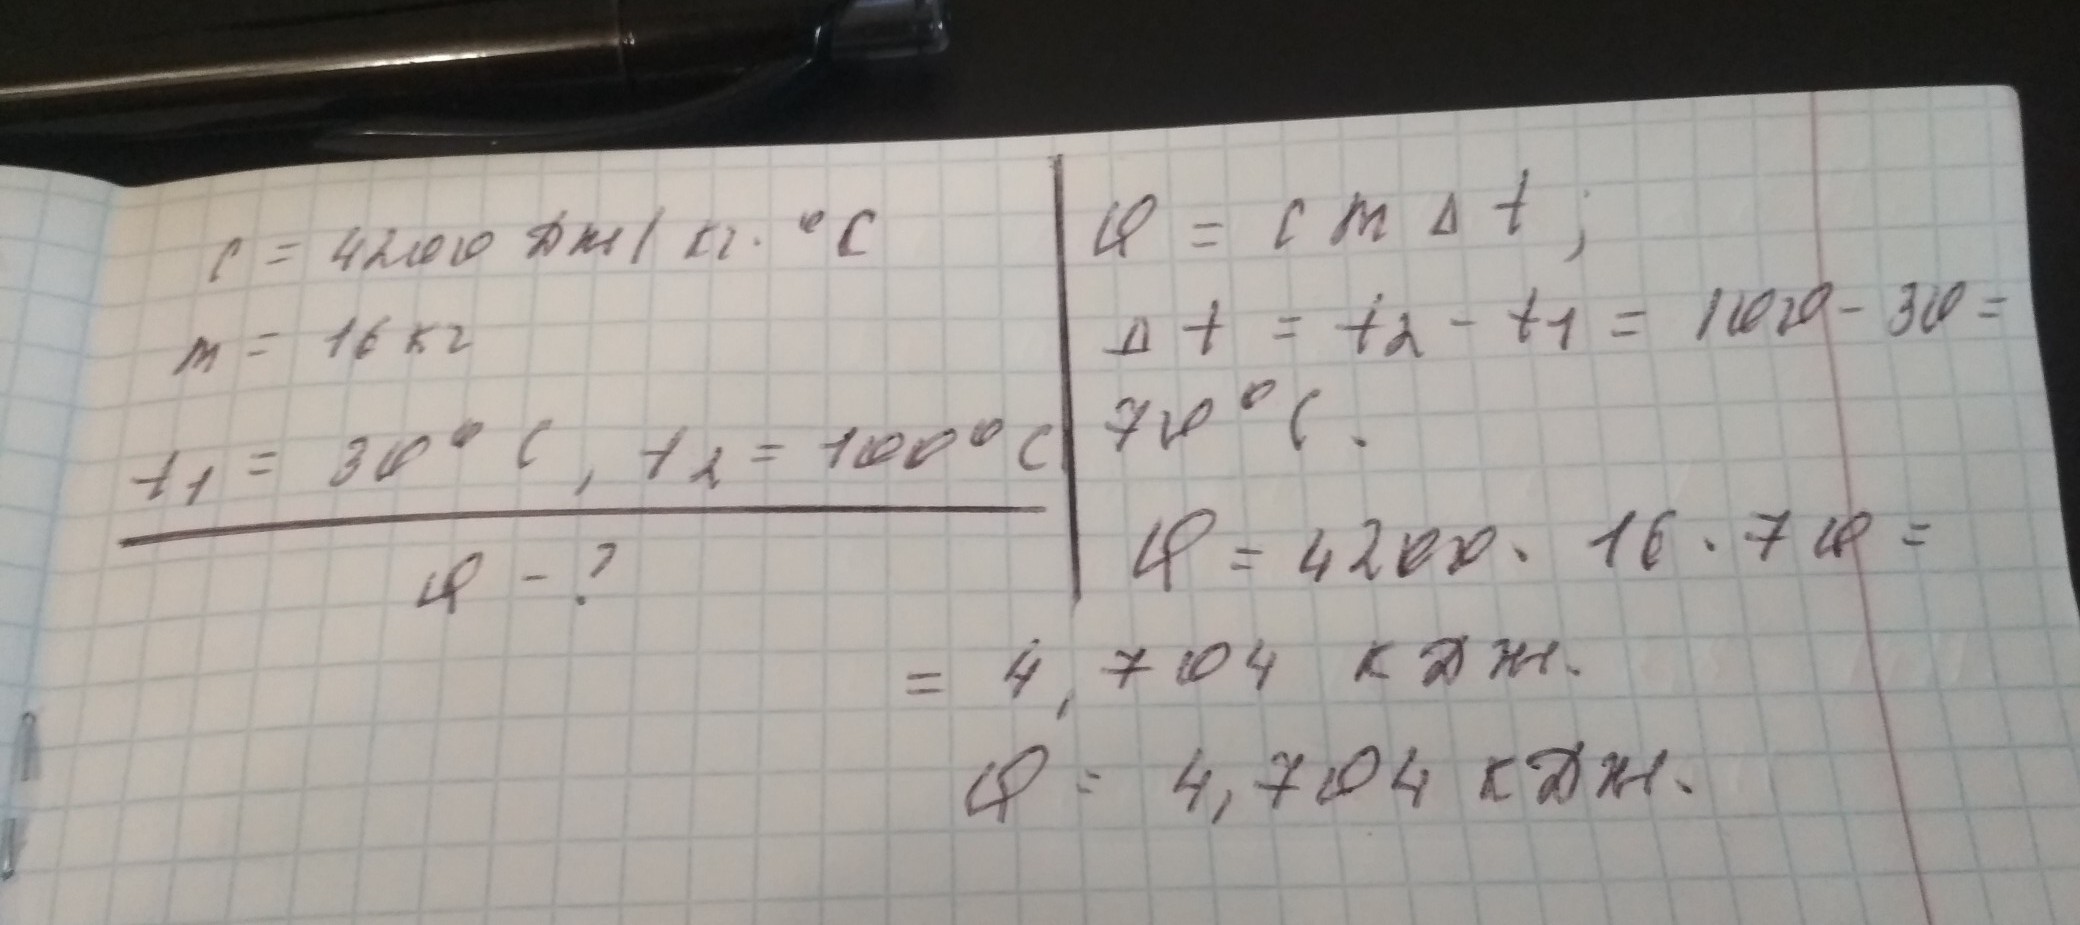 c = 4200 Дж/кг·°C
m = 16 кг
t1 = 30°C, t2 = 100°C
Q - ?
Q = c m Δ t;
Δ t = t2 - t1 = 100 - 30 =
70°C.
Q = 4200 · 16 · 70 =
= 4,704 кДж.
Q = 4,704 кДж.